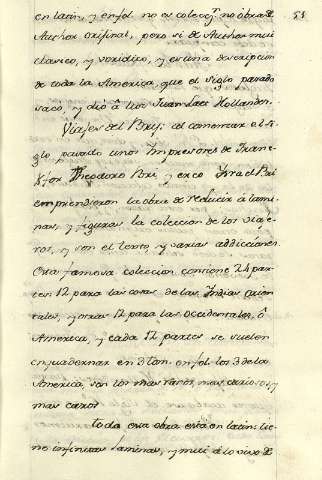 51
en latin, y en fol. no es colecc.n no obra de
Author original, pero si de Author mui
clasico, y veridico, y es una descripcion
de toda la America, que el siglo pasado
sacò, y diò â luz Juan Laet Hollandes.
Viajes del Brij: al comenzar el si-
glo pasado unos Impresores de Franc-
fort Theodoro Bri, y Israel Bri
emprendieron la obra de reducir â lami-
nas, y figuras la coleccion de los viaje-
ros, y con el texto, y varias addicciones
Esta famosa coleccion contiene 24 par-
tes: 12 para las cosas de las Indias orien-
tales, y otras 12 para las occidentales, ô
America, y cada 12 partes se suelen
enquadernar en 3 tom. en fol. los 3 de la
America, son los mas raros, mas curiosos, y
mas caros
toda esa obra està en latin: tie-
ne infinitas laminas, y mui â lo vivo de